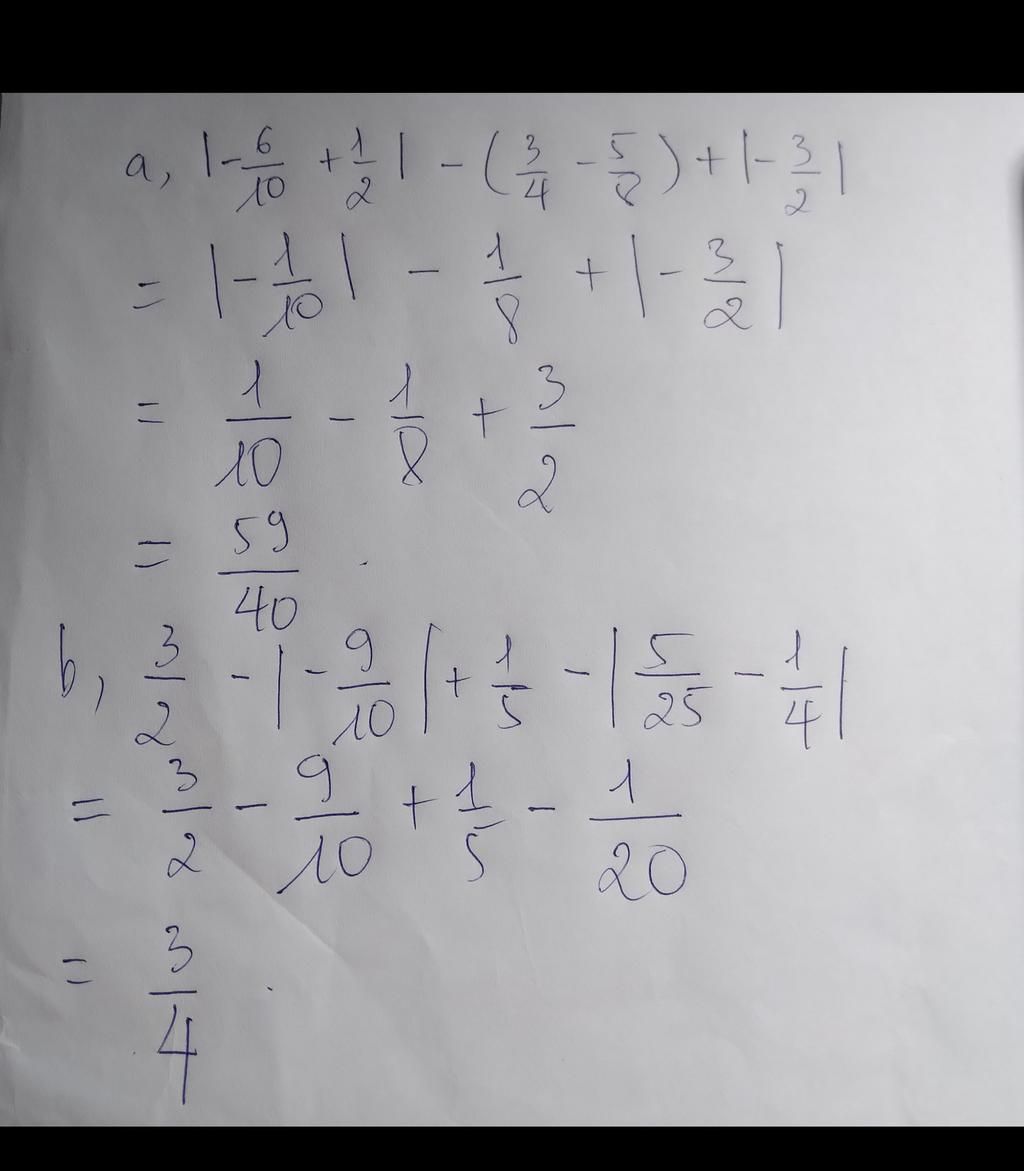 a, |-6/10 + 1/2| - (3/4 - 5/8) + |-3/2|
= |-1/10| - 1/8 + |-3/2|
= 1/10 - 1/8 + 3/2
= 59/40 .
b, 3/2 - |-9/10| + 1/5 - |5/25 - 1/4|
= 3/2 - 9/10 + 1/5 - 1/20
= 3/4 .